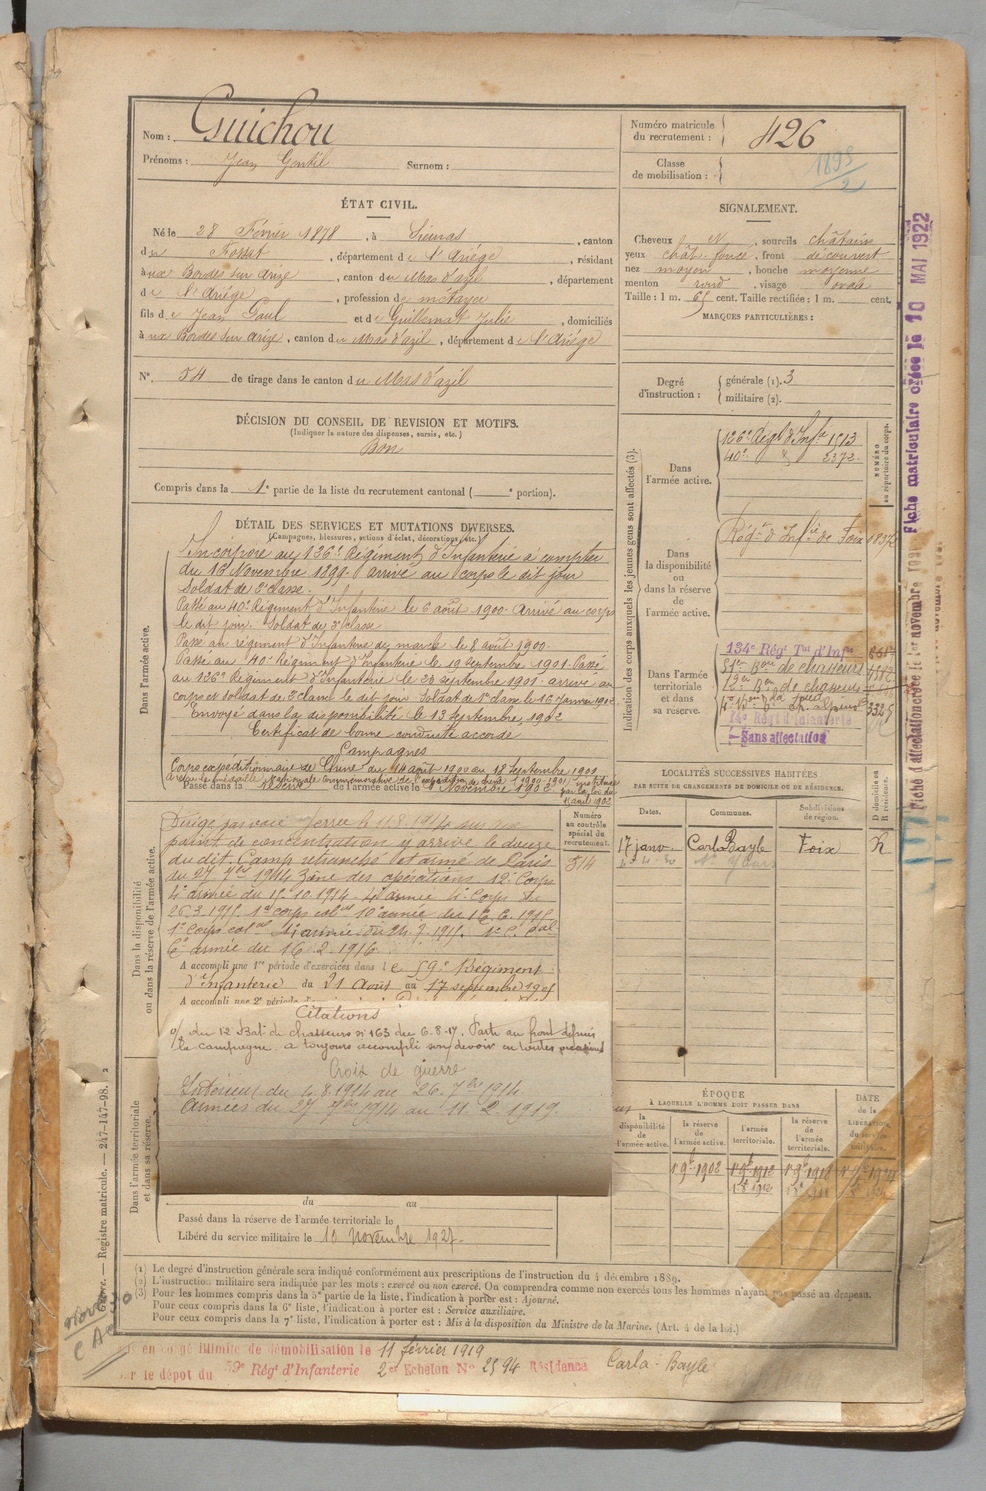 Nom : Guichou
Prénoms : Jean Gentil Surnom :
Numéro matricule du recrutement : 426
Classe de mobilisation :
ÉTAT CIVIL.
Né le 28 Février 1878, à Sieuras, canton
du Fossat, département de l'Ariège, résidant
aux Bordes sur Arize, canton du Mas d'azil, département
de l'Ariège, profession de
fils de Jean Paul et de Guillemat Julie, domiciliés
à ux Bordes sur Arize, canton du Mas d'azil, département de l'Ariège
N° 54 de tirage dans le canton du Mas d'azil
SIGNALEMENT.
Cheveux N, sourcils châtain
yeux chât. foncé, front découvert
nez moyen, bouche moyenne
menton rond, visage ovale
Taille : 1 m. 65 cent. Taille rectifiée : 1 m. cent.
MARQUES PARTICULIÈRES :
Degré d'instruction : générale (1). 3
militaire (2).
DÉCISION DU CONSEIL DE REVISION ET MOTIFS.
(Indiquer la nature des dispenses, sursis, etc.)
Bon
Compris dans la 1e partie de la liste du recrutement cantonal ( e portion).
DÉTAIL DES SERVICES ET MUTATIONS DIVERSES.
(Campagnes, blessures, actions d'éclat, décorations, etc.)
Dans l'armée active.
Incorporé au 126e Régiment d'Infanterie à compter
du 16 Novembre 1899. arrivé au corps le dit jour
Soldat de 2e classe.
Passé au 40e Régiment d'Infanterie le 6 août 1900. Arrivé au corps
le dit jour. Soldat de 2e classe
Passé au régiment d'Infanterie de marche le 8 août 1900.
Passé au 40e Régiment d'Infanterie le 19 septembre 1901. Passé
au 126e Régiment d'Infanterie le 23 septembre 1901. arrivé au
corps et soldat de 2e classe le dit jour. Soldat de 1e classe le 16 Janvier 1902
Envoyé dans la disponibilité le 13 Septembre 1902
Certificat de bonne conduite accordé
Campagnes
Corps expéditionnaire de Chine du 14 août 1900 au 18 Septembre 1901
A reçu la médaille Nationale Commémorative de l'expédition de Chine (1900-1901) instituée par la loi du 15 avril 1902
Passé dans la réserve de l'armée active le 1 Novembre 1902
Indication des corps auxquels les jeunes gens sont affectés (3).
NUMÉRO au répertoire du corps.
Dans l'armée active.
126e Régt d'Infie 1513
40e d° 2372
Dans la disponibilité ou dans la réserve de l'armée active.
Régt d'Infie de Foix
Dans l'armée territoriale et dans sa réserve.
134e Régt Tal d'Infie
51e Bon de chasseurs 4512
12e Bon de chasseurs
14e Régt d'Infanterie
Sans affectation
Dans la disponibilité ou dans la réserve de l'armée active.
Dirigé par voie ferrée le 11.8.1914 sur son
point de concentration y arrive le douze
du dit. Camp retranché et armé de Paris
du 27 7bre 1914 Zone des opérations 12e Corps
4e armée du 15.10.1914. 4e armée 4e Corps du
26.3.1915. 1e corps colal 10e armée du 16.6.1915
1e Corps colal armée du 24.7.1915. 1e C. Cal
6e armée du 16.2.1916
A accompli une 1re période d'exercices dans le 59e Régiment
d'Infanterie du 21 Août au 17 septembre 1905
A accompli une 2e période
Numéro au contrôle spécial du recrutement.
514
LOCALITÉS SUCCESSIVES HABITÉES
PAR SUITE DE CHANGEMENTS DE DOMICILE OU DE RÉSIDENCE.
Dates. Communes. Subdivisions de région. D domicile ou R résidence.
17 janv. Carla Bayle Foix R
Citations
o/ du 12 Bat. de chasseurs n° 163 du 6.8.17. Parti au front depuis
la campagne a toujours accompli son devoir en toutes occasions
Croix de guerre
Intérieur du 4.8.1914 au 26.7bre 1914
Armées du 27 7bre 1914 au 11.2.1919.
ÉPOQUE
À LAQUELLE L'HOMME DOIT PASSER DANS
la disponibilité de l'armée active. la réserve de l'armée active. l'armée territoriale. la réserve de l'armée territoriale.
DATE de la LIBÉRATION du service militaire.
1r 9b 1902 1r 9b 1912 1r 9b 1918
Dans l'armée territoriale et dans sa réserve.
du au
Passé dans la réserve de l'armée territoriale le
Libéré du service militaire le 10 novembre 1927.
(1) Le degré d'instruction générale sera indiqué conformément aux prescriptions de l'instruction du 4 décembre 1889.
(2) L'instruction militaire sera indiquée par les mots : exercé ou non exercé. On comprendra comme non exercés tous les hommes n'ayant pas passé au drapeau.
(3) Pour les hommes compris dans la 5e partie de la liste, l'indication à porter est : Ajourné.
Pour ceux compris dans la 6e liste, l'indication à porter est : Service auxiliaire.
Pour ceux compris dans la 7e liste, l'indication à porter est : Mis à la disposition du Ministre de la Marine. (Art. 4 de la loi.)
en congé illimité de démobilisation le 11 février 1919
le dépôt du 59e Régt d'Infanterie 2er Echelon N° 2594 Résidence Carla-Bayle
Guerre. — Registre matricule. — 247-147-98.
Fiche matriculaire créée le 10 MAI 1922